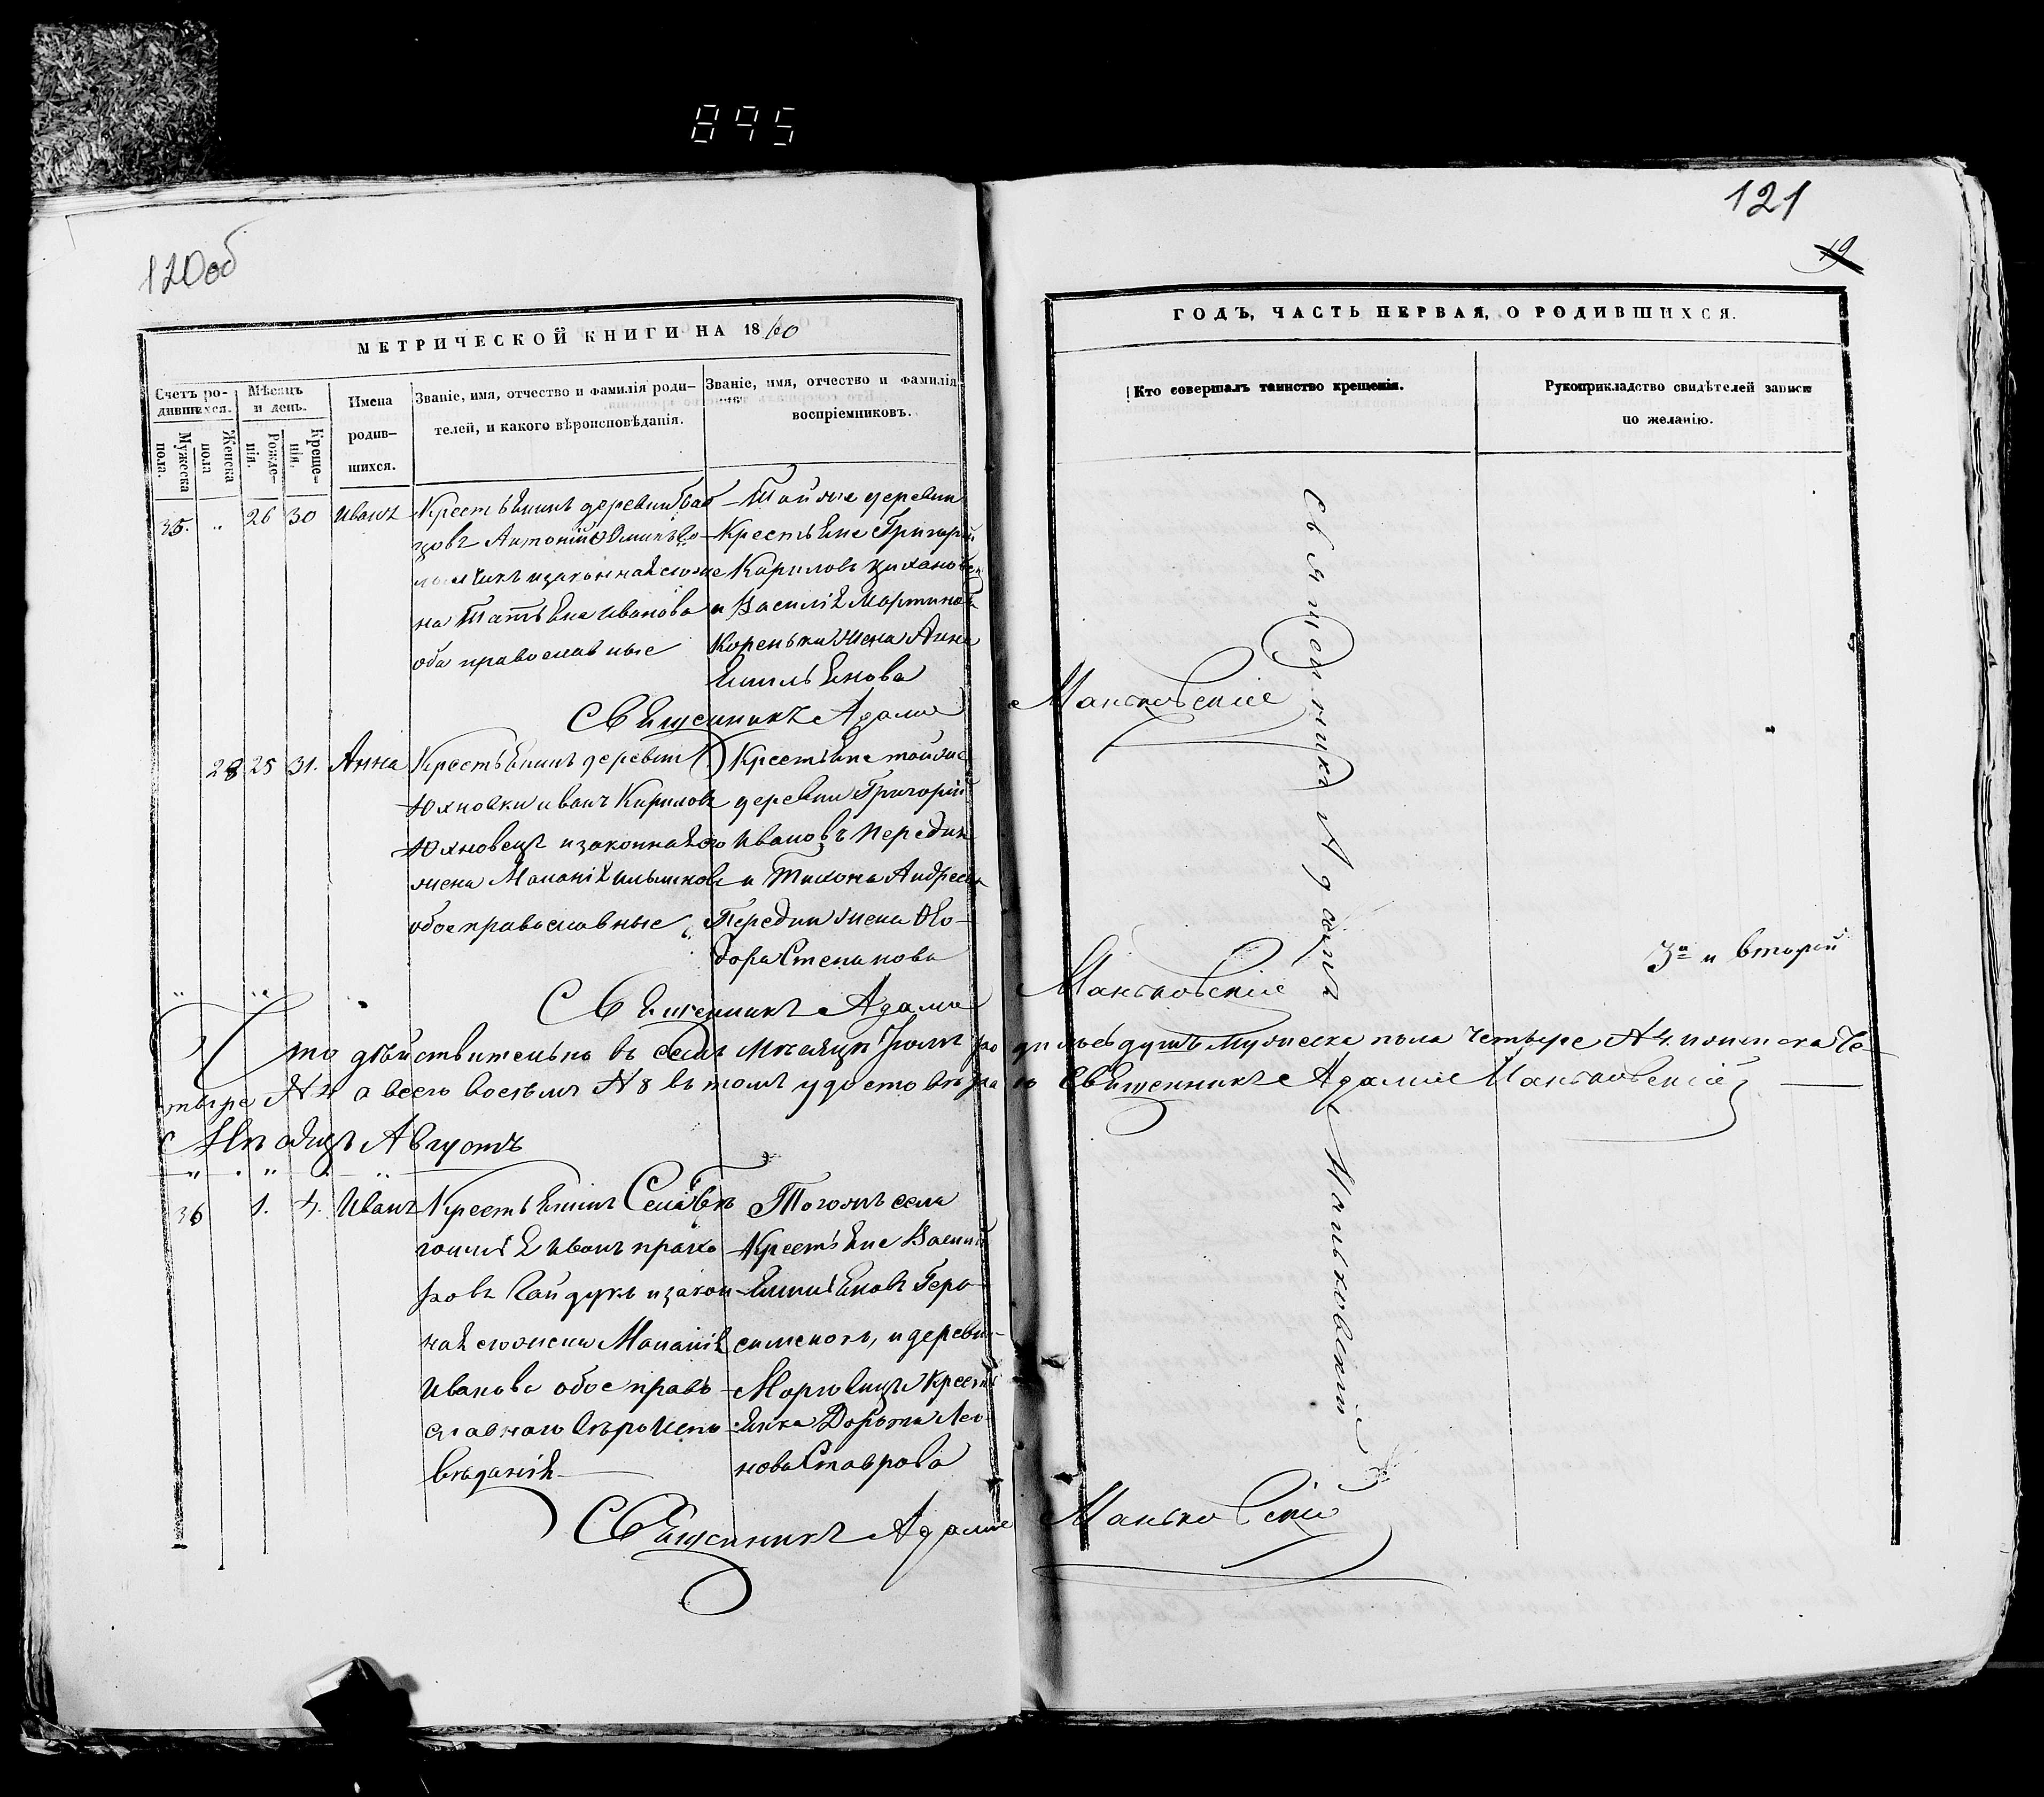 895
120об
121
19
МЕТРИЧЕСКОЙ КНИГИ НА 1860
ГОДЪ, ЧАСТЬ ПЕРВАЯ, О РОДИВШИХСЯ.
Счетъ ро-
дившихся.
Мужеска
пола.
Женска
пола
Мѣсяцъ
и день.
Рожде-
нія.
Креще-
нія.
Имена
родив-
шихся.
Званіе, имя, отчество и фамилія роди-
телей, и какого вѣроисповѣданія.
Званіе, имя, отчество и фамилія
воспріемниковъ.
Кто совершалъ таинство крещенія.
Рукоприкладство свидѣтелей записи
по желанію.
35. „ 26 30 Иванъ
Крестьянинъ деревни
Антоній
и законная его же
на Татьяна Иванова
оба православные
Той же деревни
Крестьяне Григорій
Кириловъ
и Василія Мартинова
Кореньки жена Анна
Емильянова
Священникъ Адамъ Маньковскій
28 25 31. Анна
Крестьянинъ деревни
Юхновки Иванъ Кириловъ
Юхновецъ и законная его
жена Маланія
обое православные
Крестьяне той же
деревни Григорій
Ивановъ Передни
и Тихона Андреева
Передни жена Ѳео-
дора Степанова
Священникъ Адамъ Маньковскій
3а и второй
Что дѣйствительно въ семъ Мѣсяцѣ Іюлѣ родилось душъ мужеска пола четыре № 4. и женска че-
тыре № 4 а всего восемь № 8 въ томъ удостовѣряю Священникъ Адамъ Маньковскій
Мѣсяцъ Августъ
36 1. 4. Иванъ
Крестьянинъ Села
Иванъ
ровъ Гайдукъ и закон
ная его жена Маланія
Иванова обое право
славнаго вѣроиспо
вѣданія
Того же села
Крестьяне Василій
Емильяновъ Гера
сименокъ, и деревни
Крестья
янка Доротя Лео
нова Ставрова
Священникъ Адамъ Маньковскій
Священникъ Адамъ Маньковскій